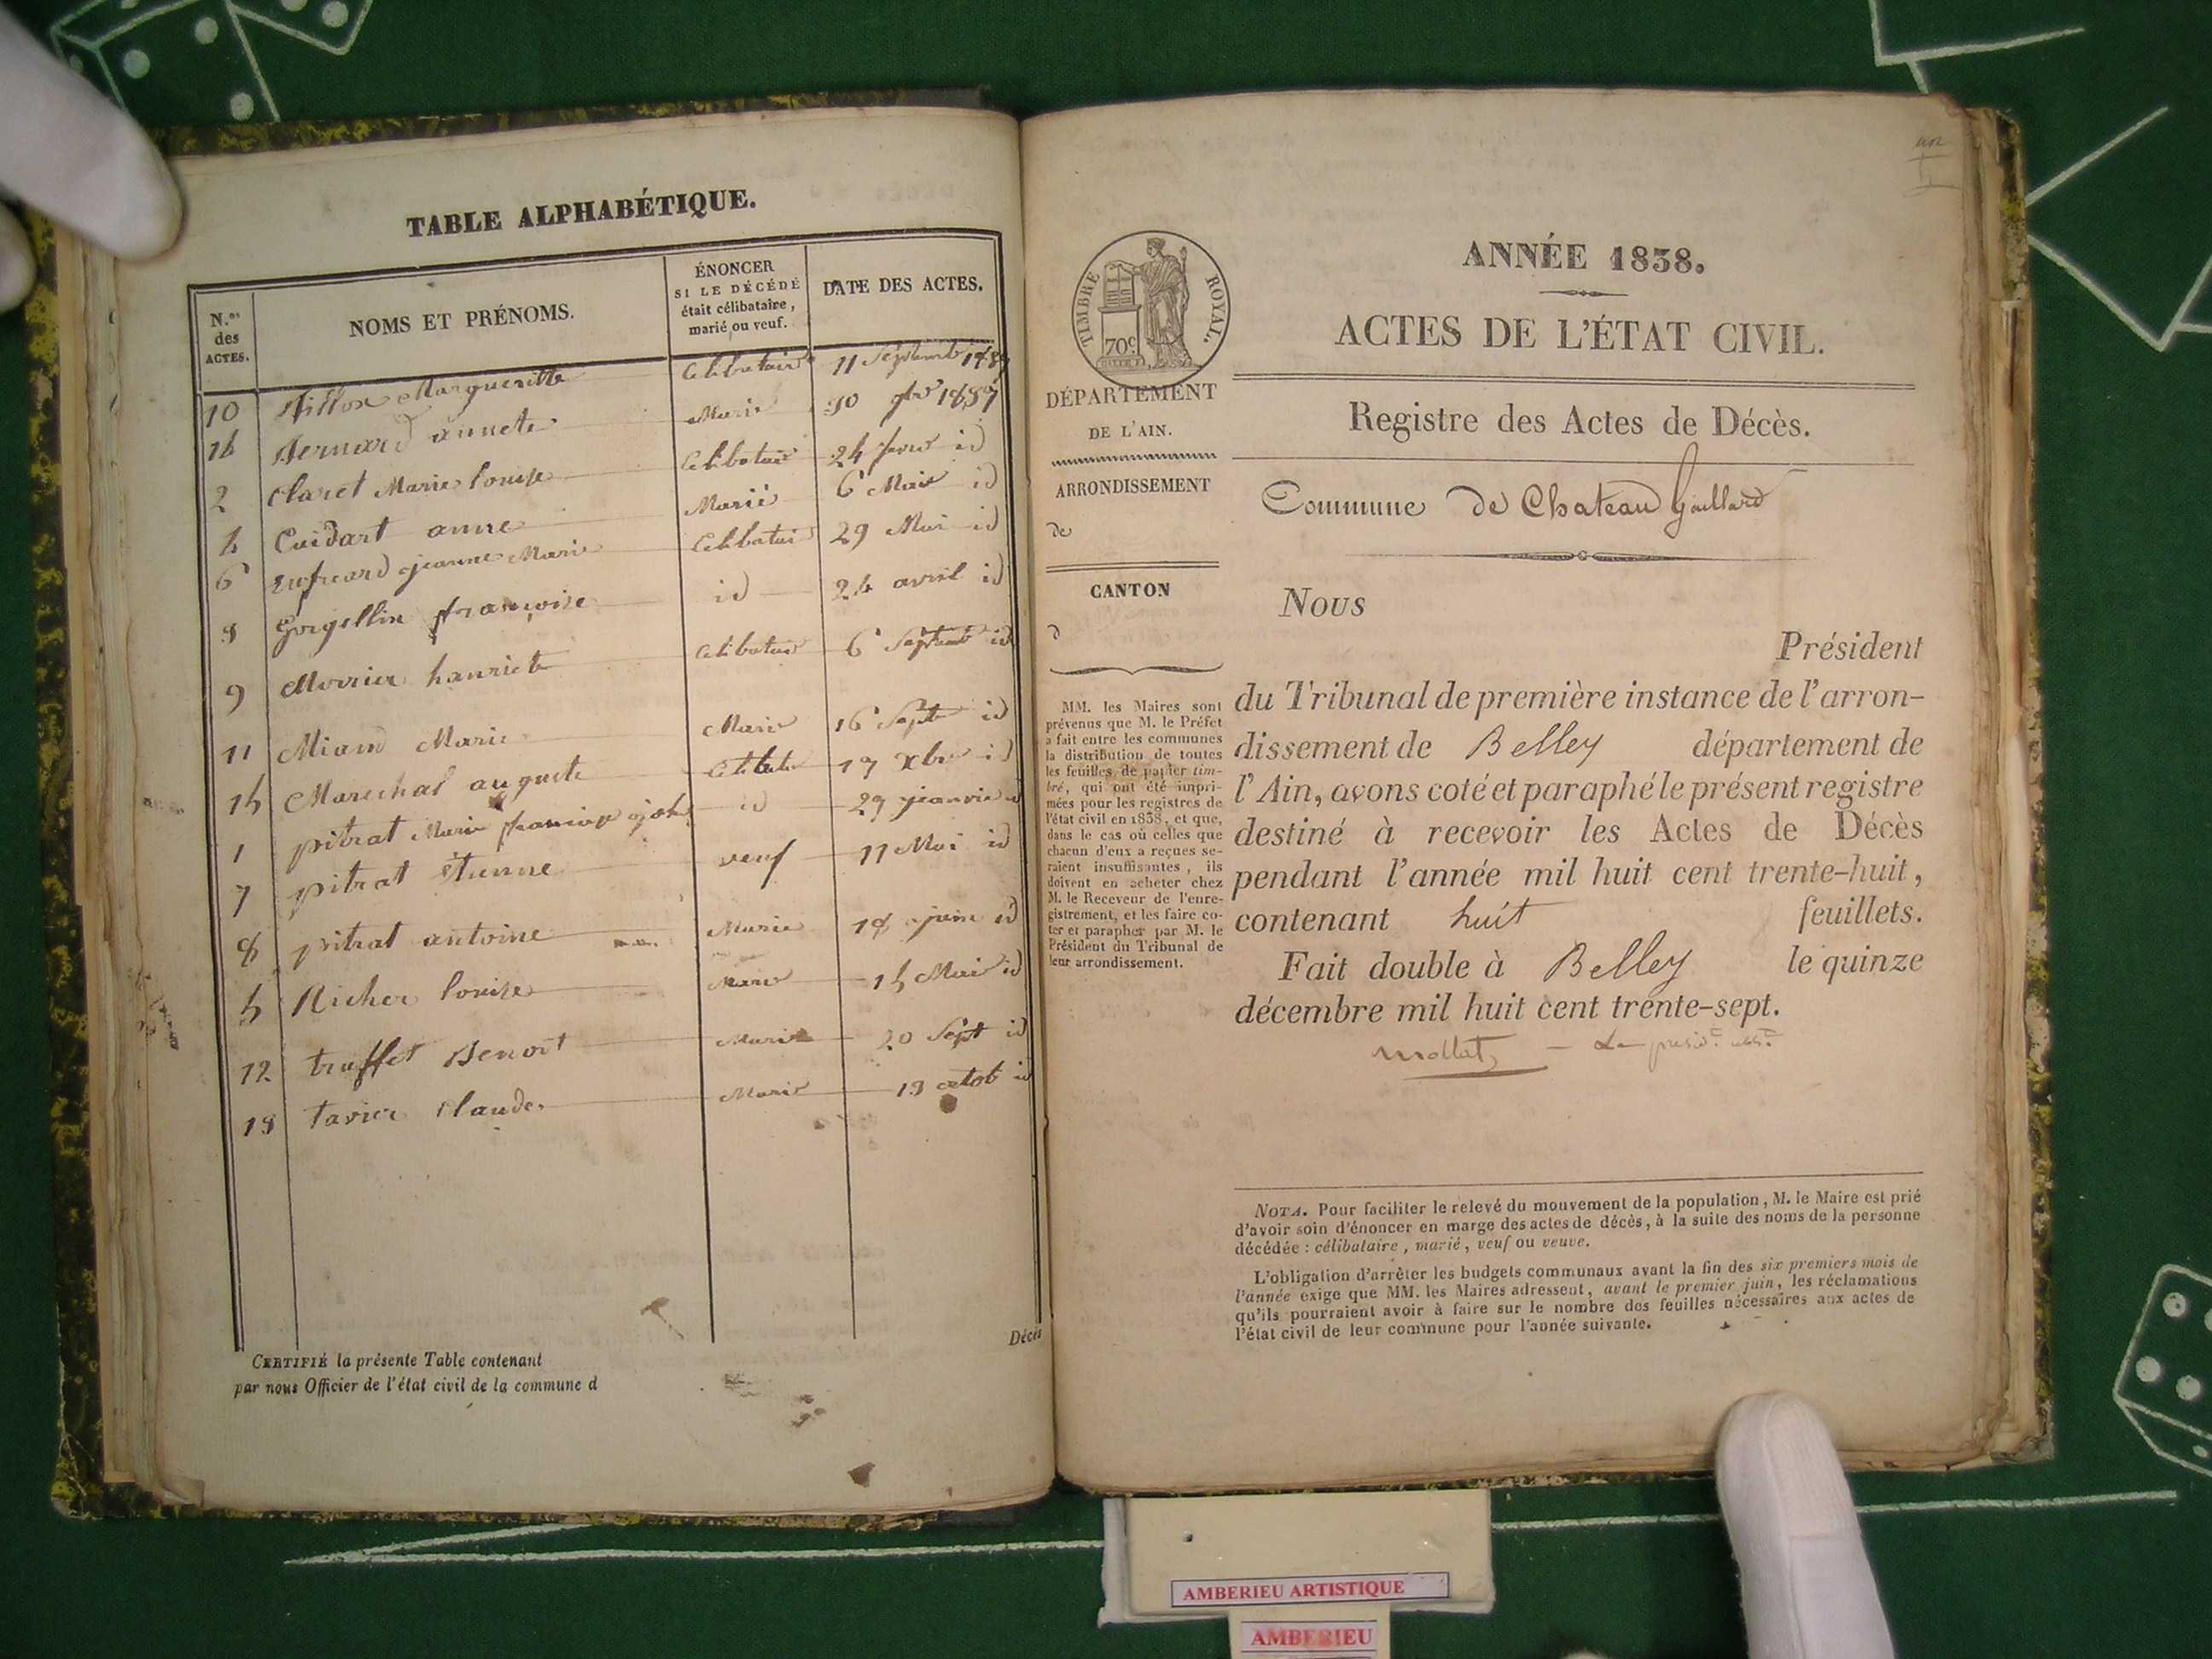 TABLE ALPHABÉTIQUE.
N.os des ACTES.
NOMS ET PRÉNOMS.
ÉNONCER
SI LE DÉCÉDÉ
était célibataire,
marié ou veuf.
DATE DES ACTES.
10 Marguerite 11
Bernard annete Marie
2 Claret Marie louise 24 id
Cuidart anne Marié 6 id
6 jeanne Marie 29 Mai id
françoise id avril id
9 6 id
11 Marie Marié 16 Sept id
Marechal auguste 19 xbre id
1 pitrat Marie id 29 janvier id
7 pitrat Étienne veuf 11 Mai id
8 pitrat antoine Marie 18 juin id
Richer louise Marié id
12 truffet Benoit Marié 20 Sept id
tavier claude Marié octob id
Décès
CERTIFIÉ la présente Table contenant
par nous Officier de l'état civil de la commune d
TIMBRE ROYAL.
70c
DÉPARTEMENT
DE L'AIN.
ARRONDISSEMENT
de
CANTON
d
MM. les Maires sont
prévenus que M. le Préfet
a fait entre les communes
la distribution de toutes
les feuilles de papier tim-
bré, qui ont été impri-
mées pour les registres de
l'état civil en 1838, et que,
dans le cas où celles que
chacun d'eux a reçues se-
raient insuffisantes, ils
doivent en acheter chez
M. le Receveur de l'enre-
gistrement, et les faire co-
ter et parapher par M. le
Président du Tribunal de
leur arrondissement.
ANNÉE 1838.
ACTES DE L'ÉTAT CIVIL.
Registre des Actes de Décès.
Commune de Chateau Gaillard
Nous
Président
du Tribunal de première instance de l'arron-
dissement de Belley département de
l'Ain, avons coté et paraphé le présent registre
destiné à recevoir les Actes de Décès
pendant l'année mil huit cent trente-huit,
contenant huit feuillets.
Fait double à Belley le quinze
décembre mil huit cent trente-sept.
NOTA. Pour faciliter le relevé du mouvement de la population, M. le Maire est prié
d'avoir soin d'énoncer en marge des actes de décès, à la suite des noms de la personne
décédée : célibataire, marié, veuf ou veuve.
L'obligation d'arrêter les budgets communaux avant la fin des six premiers mois de
l'année exige que MM. les Maires adressent, avant le premier juin, les réclamations
qu'ils pourraient avoir à faire sur le nombre des feuilles nécessaires aux actes de
l'état civil de leur commune pour l'année suivante.
AMBERIEU ARTISTIQUE
AMBERIEU